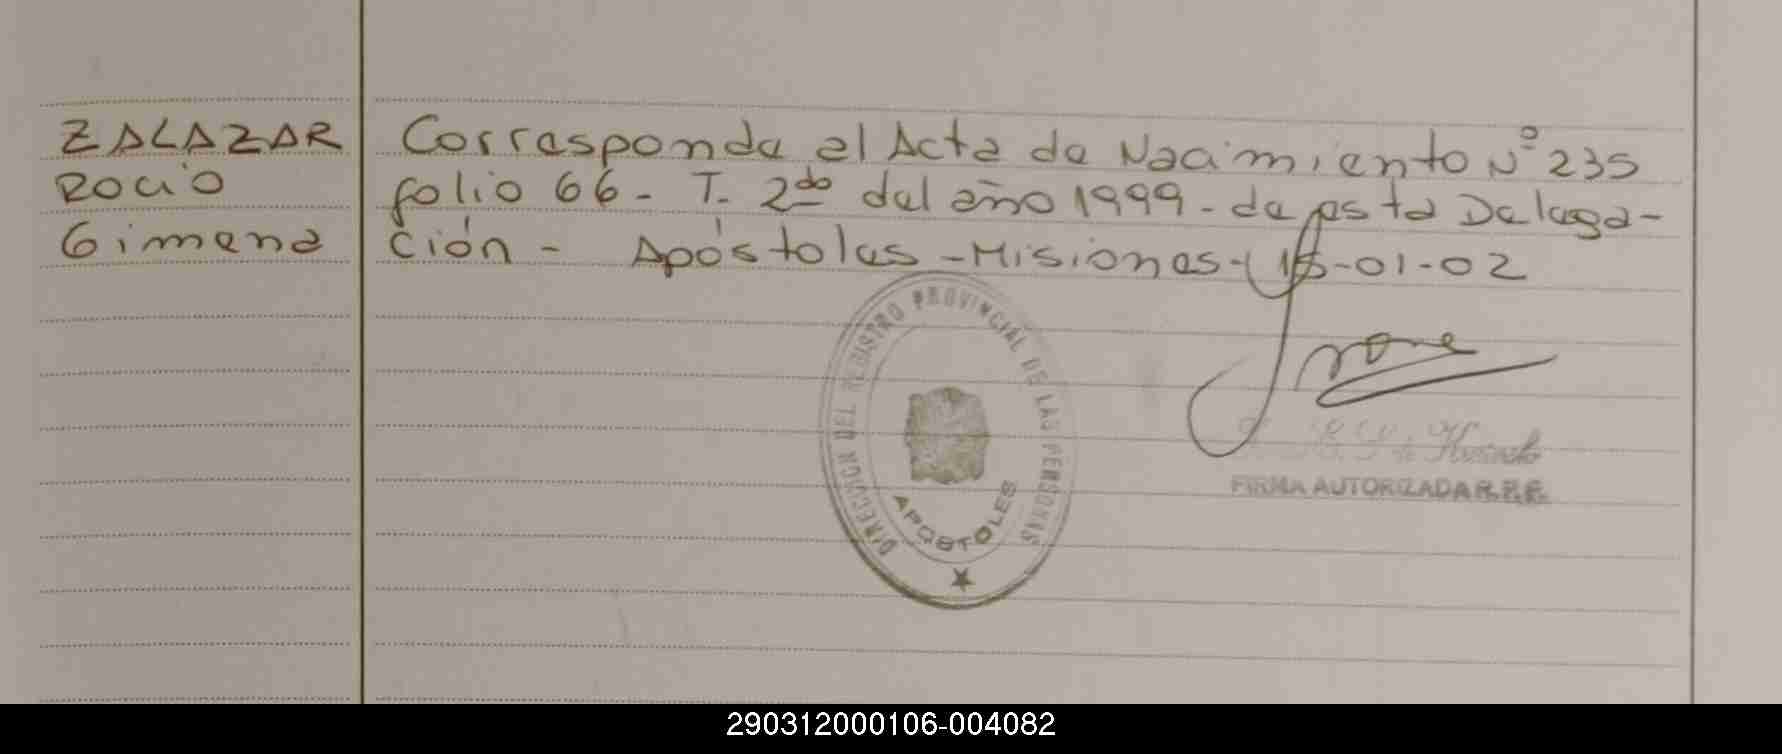 ZALAZAR
Rocio
Gimena
Corresponde el Acta de Nacimiento Nº 235
folio 66- T. 2do del año 1999- de esta Delega-
ción - Apóstoles - Misiones- 15-01-02
DIRECCION DEL REGISTRO PROVINCIAL DE LAS PERSONAS
APOSTOLES
FIRMA AUTORIZADA
290312000106-004082